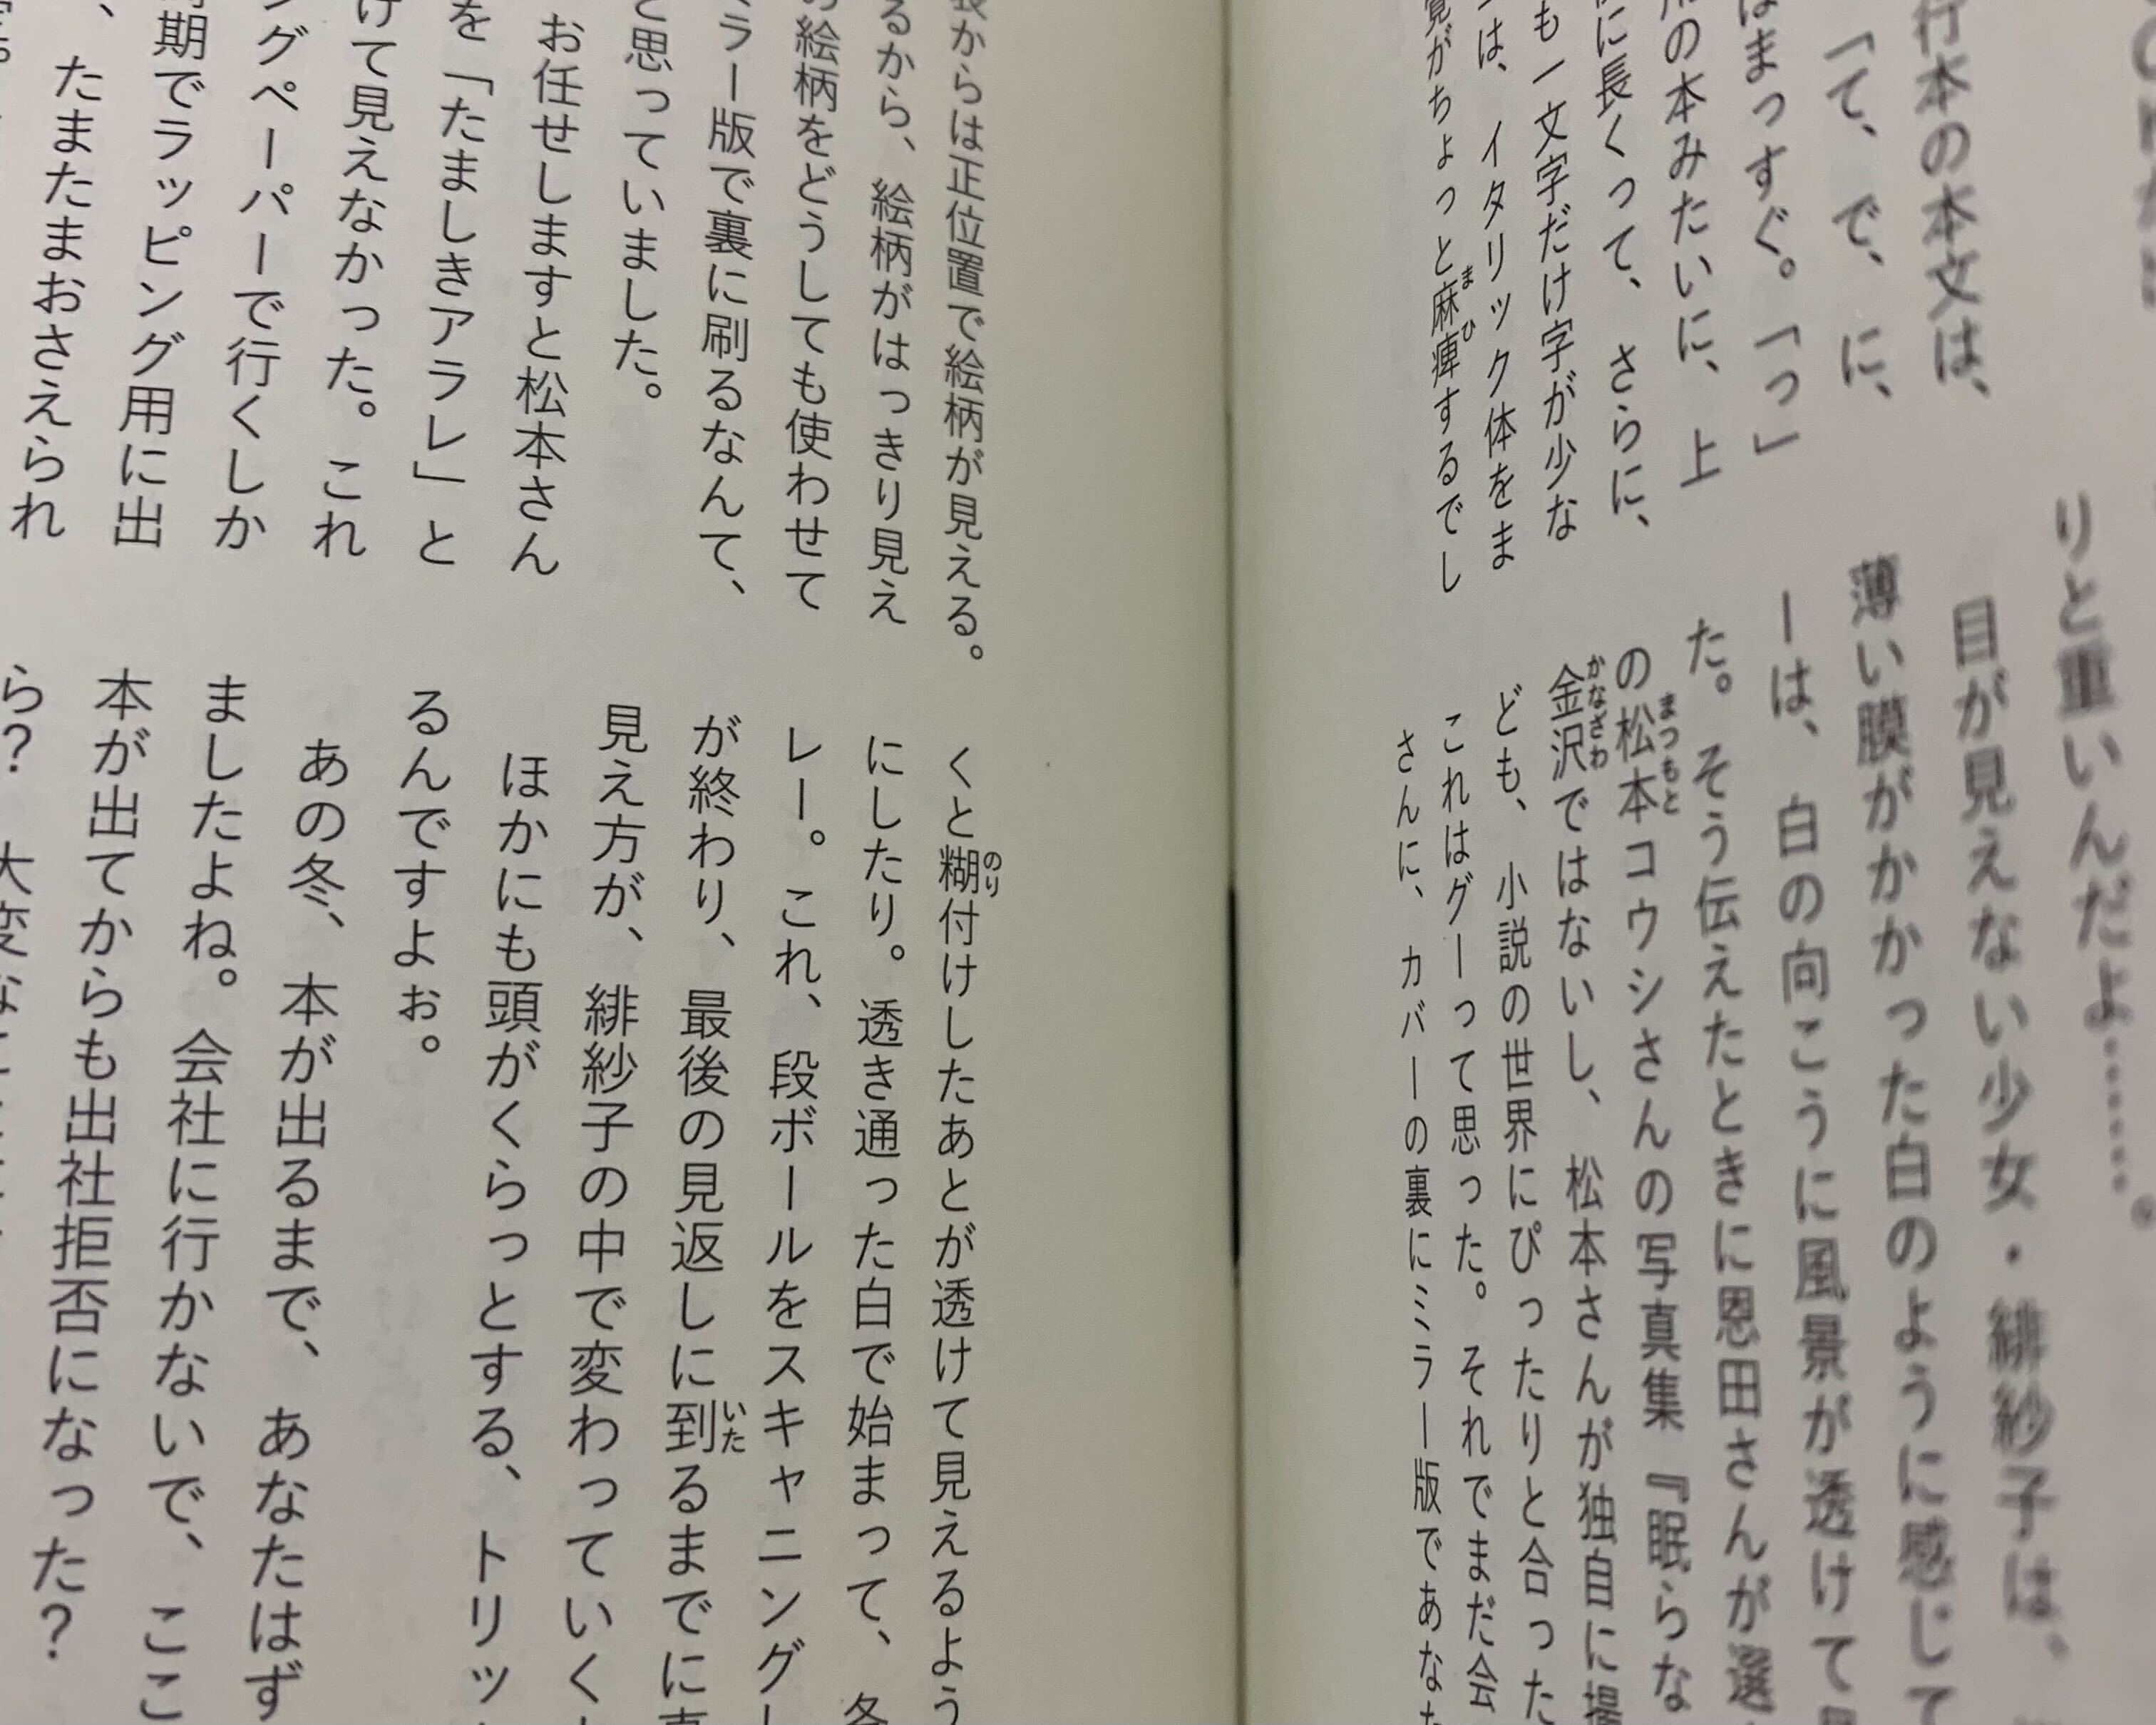 行本の本文は、
「て、で、に、
はまっすぐ。「っ」
の本みたいに、上
に長くって、さらに、
も一文字だけ字が少な
は、イタリック体をま
覚がちょっと麻痺するでし
りと重いんだよ……。
目が見えない少女・緋紗子は、
薄い膜がかかった白のように感じて
ーは、白の向こうに風景が透けて見
た。そう伝えたときに恩田さんが選
の松本コウシさんの写真集『眠らな
金沢ではないし、松本さんが独自に撮
ども、小説の世界にぴったりと合った
これはグーって思った。それでまだ会
さんに、カバーの裏にミラー版であなた
からは正位置で絵柄が見える。
るから、絵柄がはっきり見え
絵柄をどうしても使わせて
ラー版で裏に刷るなんて、
と思っていました。
お任せしますと松本さん
を「たましきアラレ」と
けて見えなかった。これ
ングペーパーで行くしか
期でラッピング用に出
、たまたまおさえられ
くと糊付けしたあとが透けて見えるよう
にしたり。透き通った白で始まって、各
レー。これ、段ボールをスキャニングし
が終わり、最後の見返しに到るまでに真
見え方が、緋紗子の中で変わっていく
ほかにも頭がくらっとする、トリッ
るんですよぉ。
あの冬、本が出るまで、あなたはず
ましたよね。会社に行かないで、ここ
本が出てからも出社拒否になった？
ら？　大変な